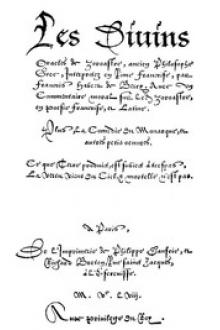 Les Diuins
Oracles de Zoroastre, ancien Philosophe
Grec, Interpretez en Rime Francoise, par
Francois Habert de Berry. Auec vn
Commentaire moral sur ledit Zoroastre,
en poesie Francoise, et Latine.
Plus La Comedie du Monarque, et
autres petis oeuures.
Ce que
La mortelle n'est pas.
A Paris,
De L'Imprimerie de Philippe Danfrie, et
Richard Breton, Rue saint Jaques,
à L'Escreuisse.
M. V. LVIII.
Auec priuilege du Roy.